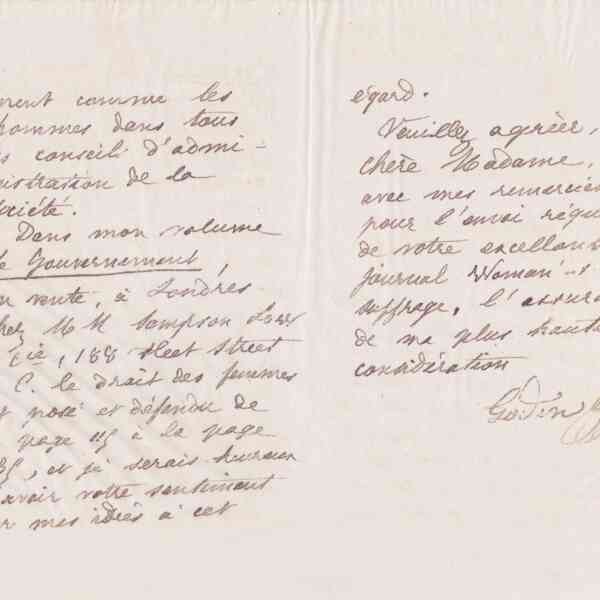 ment comme les
hommes dans tous
s conseils d'admi-
nistration de la
ociété.
Dans mon volume
le Gouvernement,
en vente, à Londres
chez M M Sampson Low
& Cie, 188 Fleet Street
E. C. le droit des femmes
est posé et défendu de
page 115 à la page
35, et je serais heureux
d'avoir votre sentiment
sur mes idées à cet
égard.
Veuillez agréer,
chère Madame,
avec mes remercie
pour l'envoi régu
de votre excellent
journal Woman's
suffrage, l'assura
de ma plus haute
considération
Godin